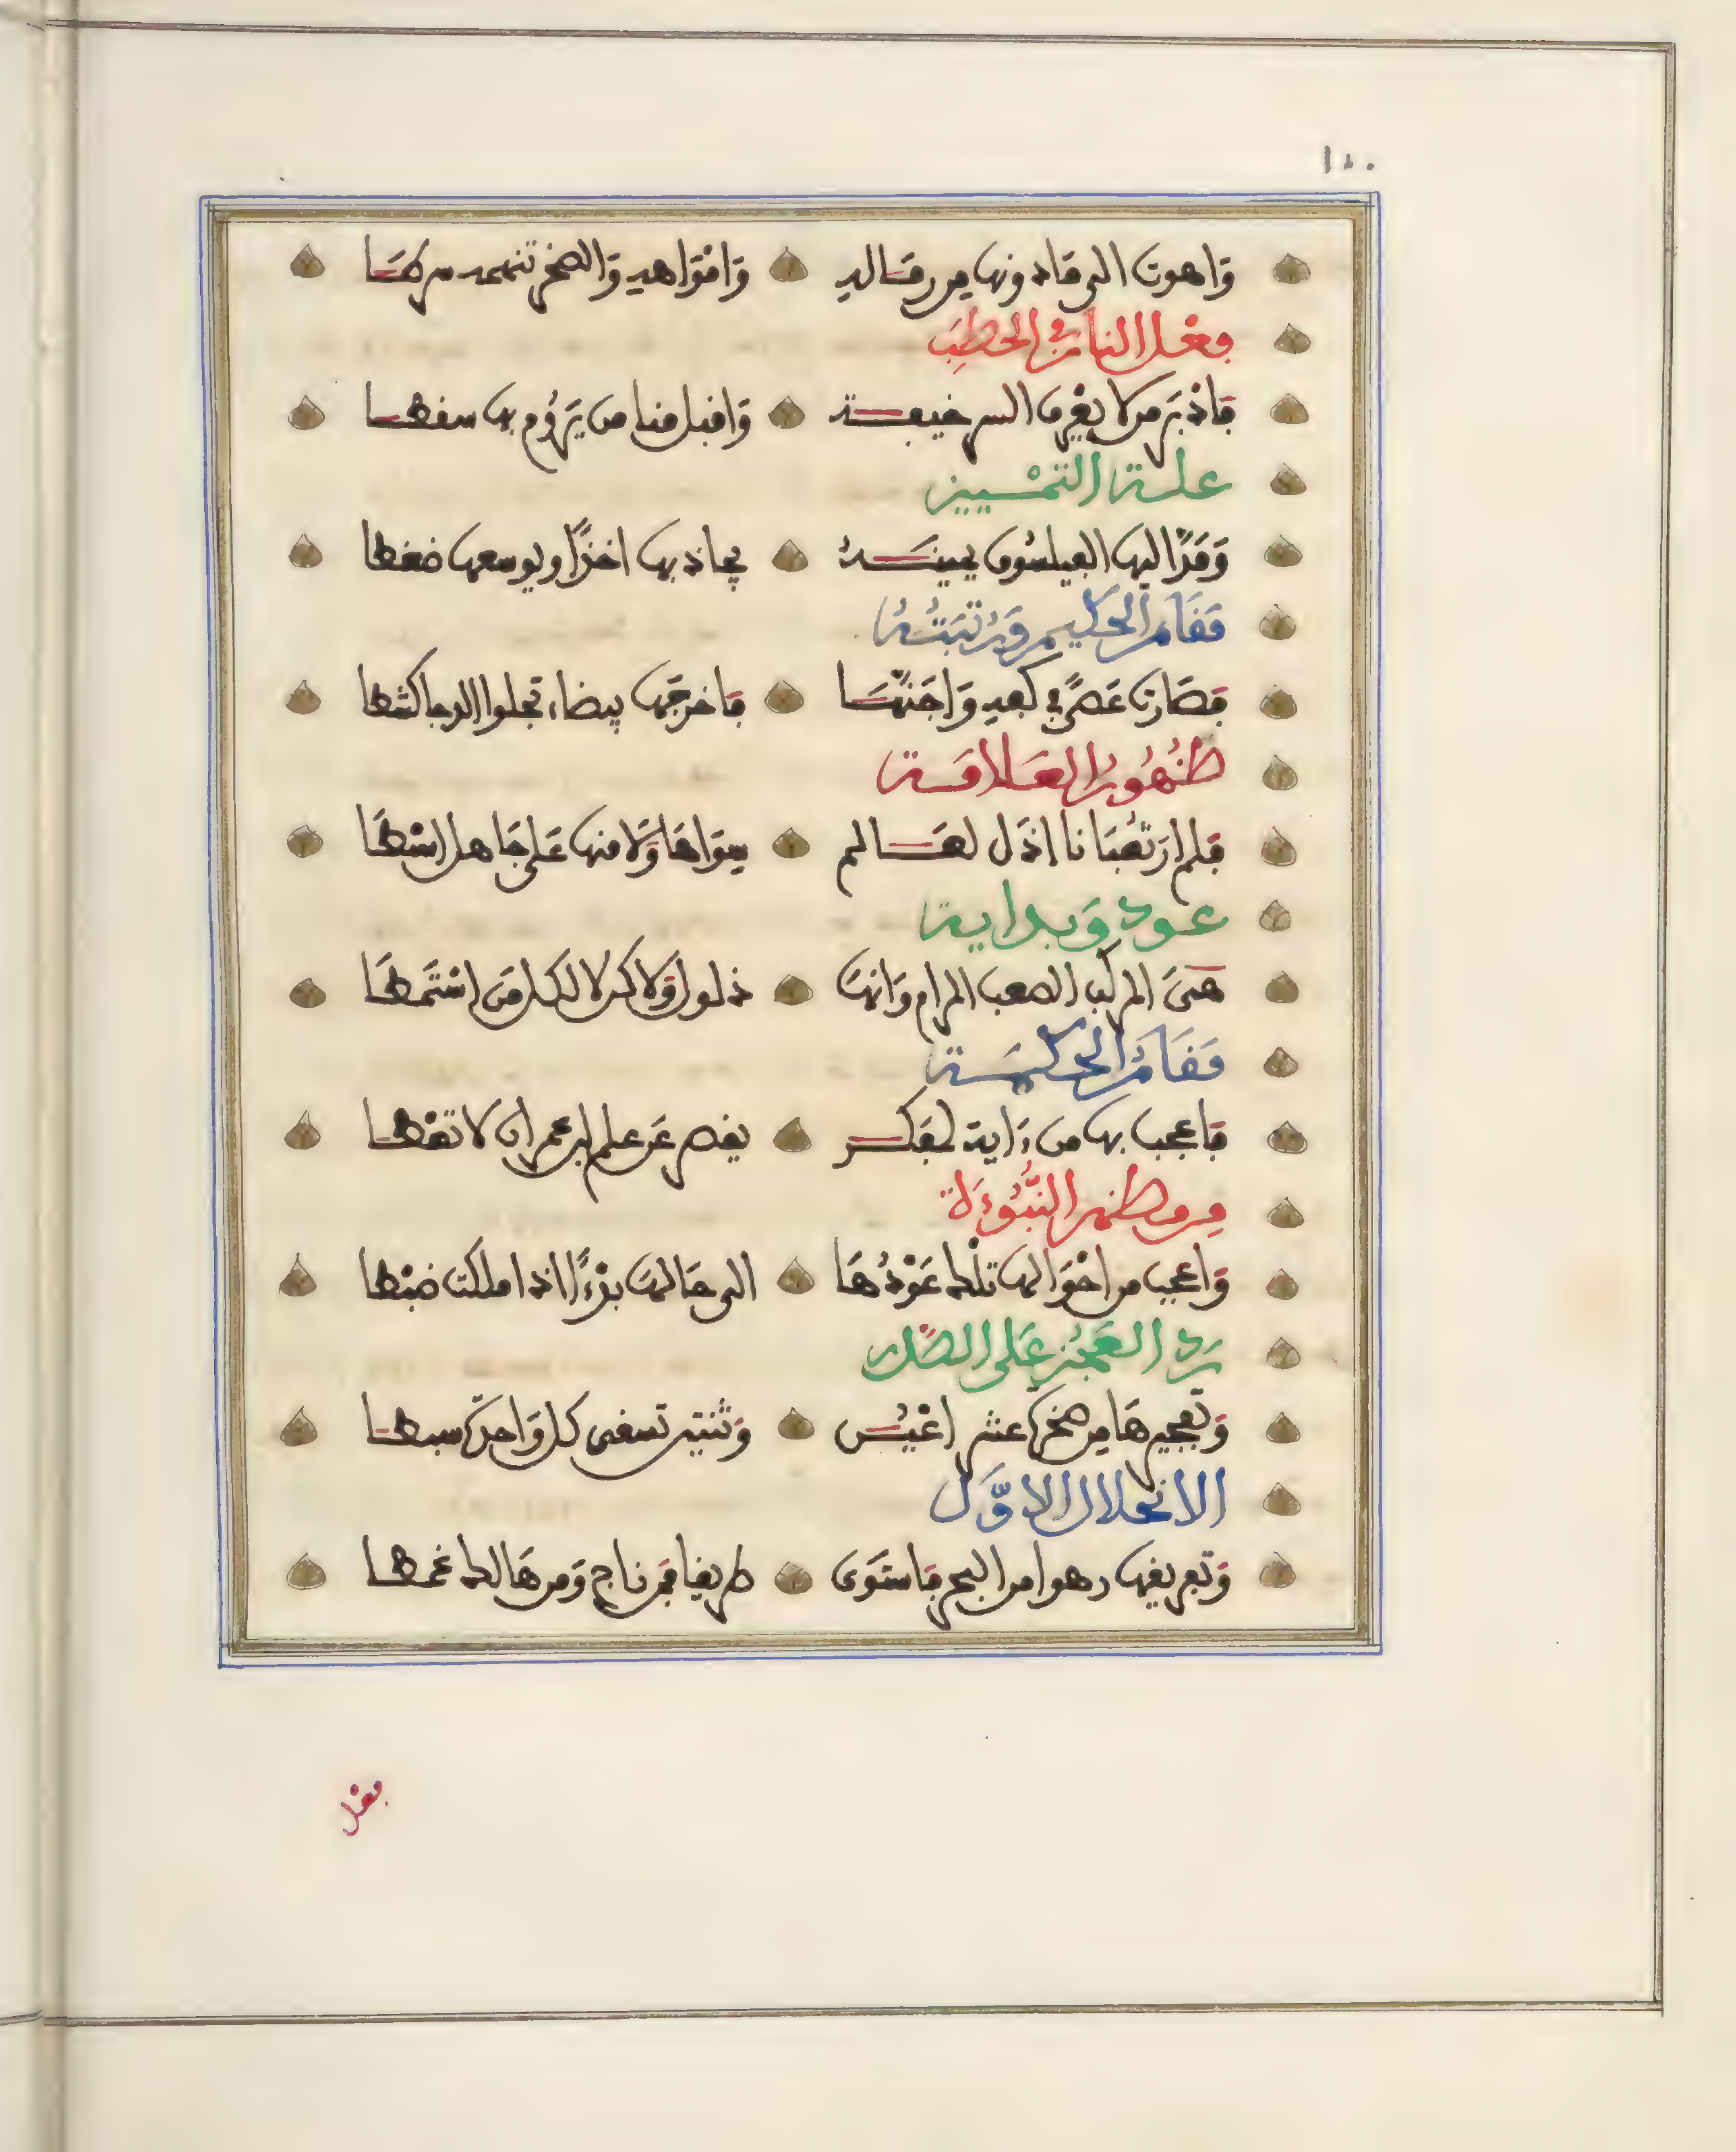 ١٤٠
وَاهوت الى مَا دونها من رمَاله وَامْوَاهه وَالصخر تنهمه سرطَا
فِعْل النار في الحطَبِ
فَأدْبَر من لا يعْرِف السر خيفة وَاقبل منا من يَرُوم بها سفطا
علة التمْييز
وَمَدّ اليها الفيلسُوف يمينَه يجاذبها اخذًا ويوسعها ضغطا
مَقَام الحكيم وَرُتبَتُهُ
فصَارت عَصًى في كفه وَاجَنهَا فَاخرجَها بيضاء تجلوا الدجا كشطا
ظُهُورُ العَلامَة
فلم ارَ ثعْبَانا اذَل لعَالم سِوَاهَا وَلا منها عَلى جَاهل اسْطَا
عود وَبداية
هيَ المركب الصعب المرام وَانهَا ذلول وَلاكن لا لكل مَن اسْتَمطَا
مَقَامُ الحكمَة
فاعجب بها من ءَاية لمفكر يقصر عَن علم ابن عمران لا تعْطا
مِن مظهر النُّبُوءَة
وَاعجب من احْوَالها تلْك عَوْدُهَا الى حَالهَا بدْءًا اذا ملكت ضبْطا
رَد العَجُز عَلى الصَّدر
وَتفجيرهَا من صخرة عشر اعْيُن وَثنتين تسقى كل وَاحدَة سبطا
الانحلال الاوَّل
وَتفريقها رهوا من البحر فاستَوى طريقا فمن ناج وَمن هَالك غمطا
فعل